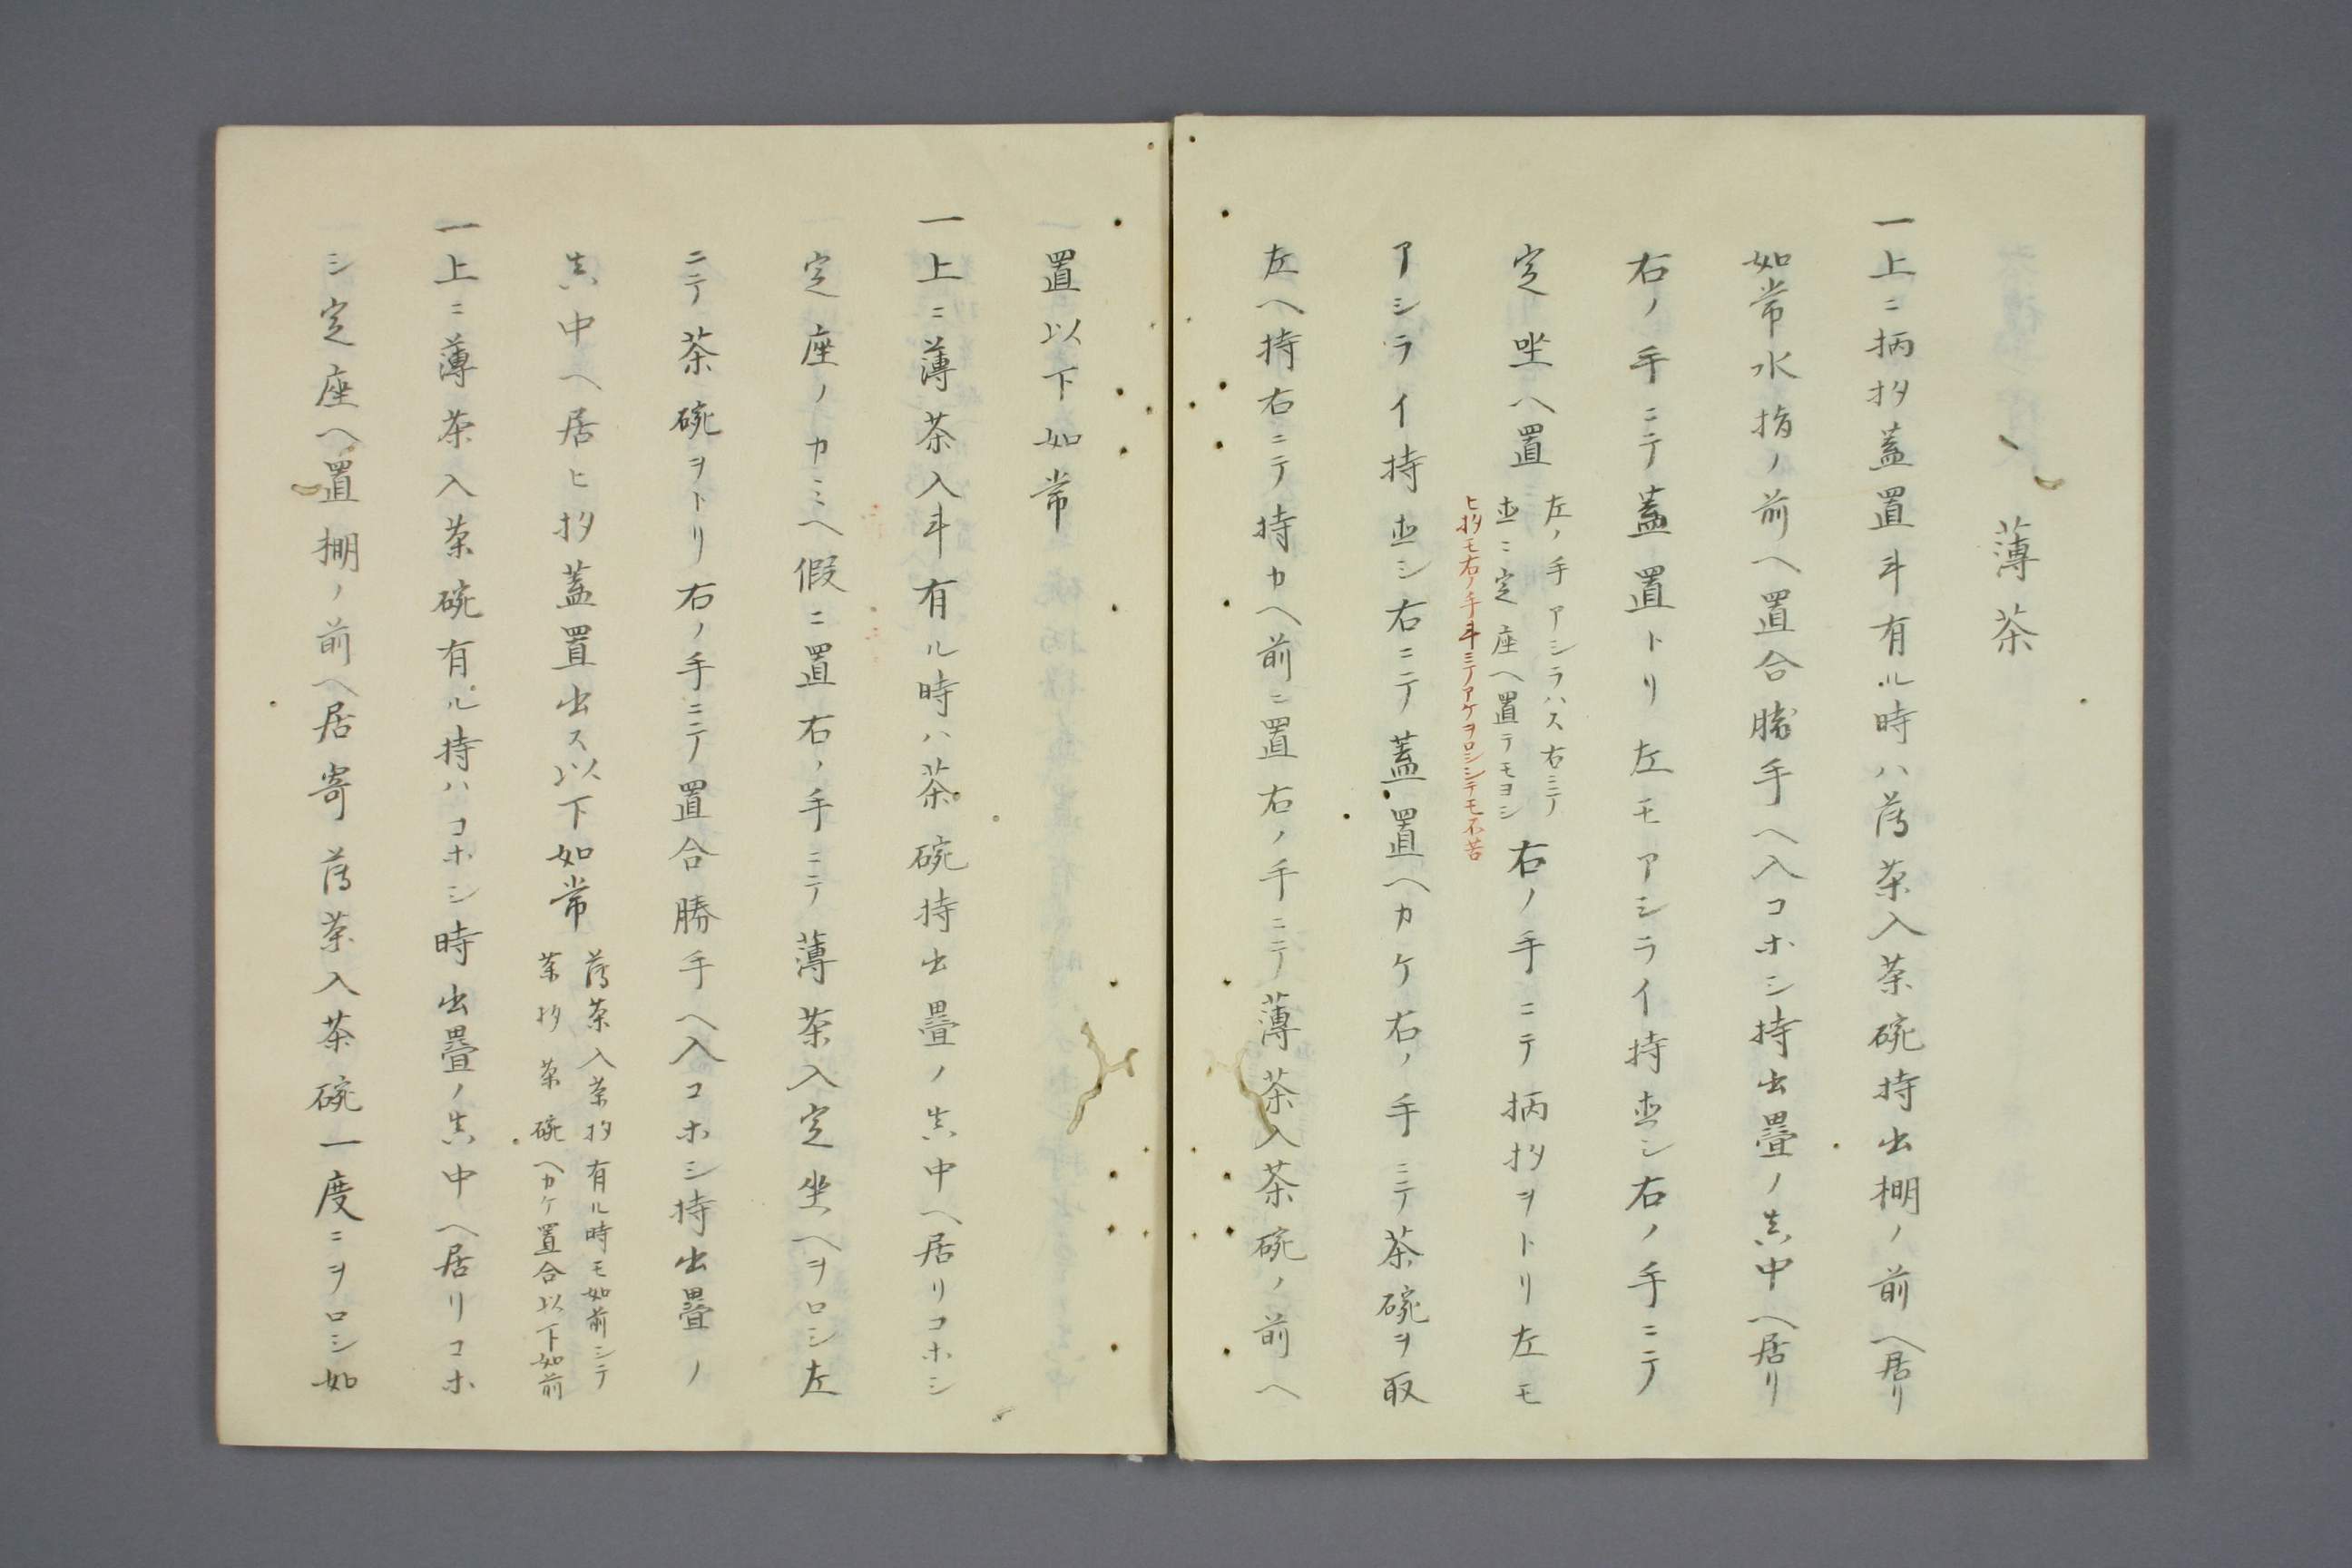 薄茶
一上ニ柄杓蓋置斗有ル時ハ薄茶入茶碗持出棚ノ前ヘ居リ
如常水指ノ前ヘ置合勝手ヘ入コホシ持出畳ノ真中ヘ居リ
右ノ手ニテ蓋置トリ左モアシライ持出シ右ノ手ニテ
定坐ヘ置
左ノ手アシラハス右ニテ
出ニ定座ヘ置テモヨシ
ヒ杓モ右ノ手斗ニテアケヲロシシテモ不苦
右ノ手ニテ柄杓ヲトリ左モ
アシライ持出シ右ニテ蓋置ヘカケ右ノ手ニテ茶碗ヲ取
左ヘ持右ニテ持カヘ前ニ置右ノ手ニテ薄茶入茶碗ノ前ヘ
置以下如常
一上ニ薄茶入斗有ル時ハ茶碗持出畳ノ真中ヘ居リコホシ
定座ノカミヘ假ニ置右ノ手ニテ薄茶入定坐ヘヲロシ左
ニテ茶碗ヲトリ右ノ手ニテ置合勝手ヘ入コホシ持出畳ノ
真中ヘ居ヒ杓蓋置出ス以下如常
薄茶入茶杓有ル時モ如前シテ
茶杓茶碗ヘカケ置合以下如前
一上ニ薄茶入茶碗有ル持ハコホシ時出畳ノ真中ヘ居リコホ
シ定座ヘ置棚ノ前ヘ居寄薄茶入茶碗一度ニヲロシ如